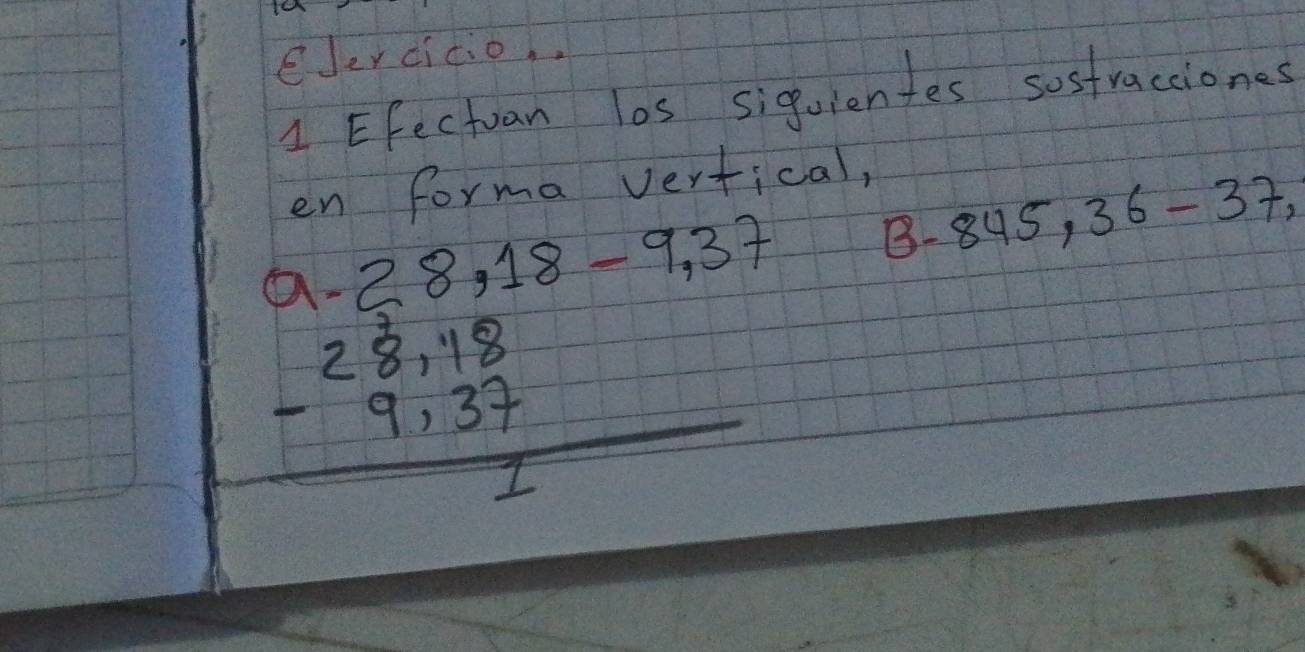 EJercicio..
1 Efectuan los siguientes sostracciones
en forma vertical,
a. 28,18 - 9,37 B. 845,36 - 37,
7
28,18
- 9,37
1